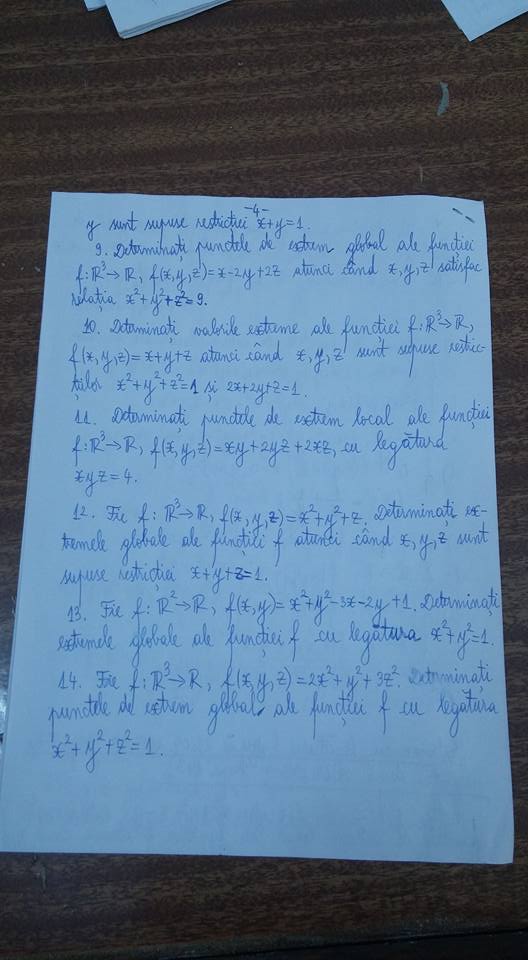 -4-
y sunt supuse restricției x+y=1.
9. Determinați punctele de extrem global ale funcției
f:ℝ³→ℝ, f(x,y,z)=x-2y+2z atunci când x,y,z satisfac
relația x²+y²+z²=9.
10. Determinați valorile extreme ale funcției f:ℝ³→ℝ,
f(x,y,z)=x+y+z atunci când x,y,z sunt supuse restric-
țiilor x²+y²+z²=1 și 2x+2y+z=1.
11. Determinați punctele de extrem local ale funcției
f:ℝ³→ℝ, f(x,y,z)=xy+2yz+2xz, cu legătura
xyz=4.
12. Fie f:ℝ³→ℝ, f(x,y,z)=x²+y²+z. Determinați ex-
tremele globale ale funcției f atunci când x,y,z sunt
supuse restricției x+y+z=1.
13. Fie f:ℝ²→ℝ, f(x,y)=x²+y²-3x-2y+1. Determinați
extremele globale ale funcției f cu legătura x²+y²=1.
14. Fie f:ℝ³→ℝ, f(x,y,z)=2x²+y²+3z². Determinați
punctele de extrem global ale funcției f cu legătura
x²+y²+z²=1.